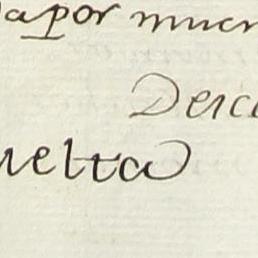 apor much
Deic
uelta